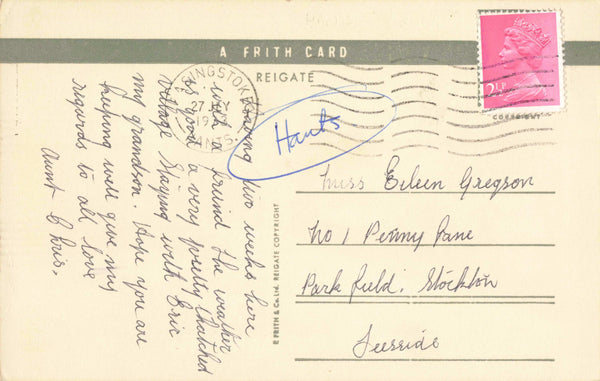 A FRITH CARD
REIGATE
BASINGSTOKE
27 MY
19
HANTS
2½P
COPYRIGHT
Hants
Having two weeks here
with a friend the weather
is good a very pretty thatched
village Staying with Eric
my grandson. Hope you are
keeping well give my
regards to all love
Aunt Chris.
F. FRITH & Co. Ltd. REIGATE COPYRIGHT
Miss Eileen Gregson
No 1 Penny Lane
Park field. Stockton
Teesside